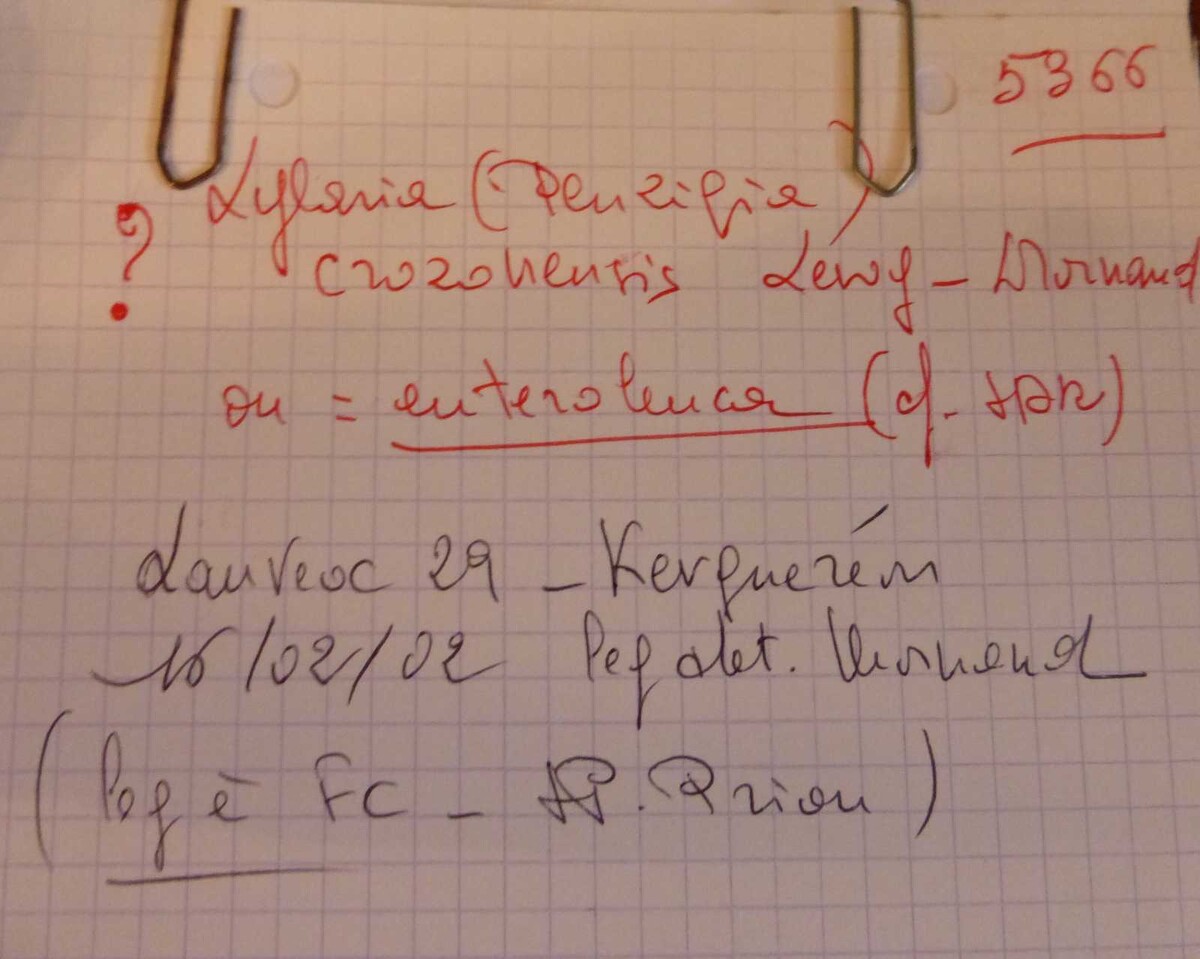 5366
? Xylaria (Penzigia)
crozonensis Leroy-Mornand
ou = enteroleuca (cf.
Lanveoc 29 - Kerguérém
16/02/02 Leg det. Mornand
(Leg è FC - JP. Priou)